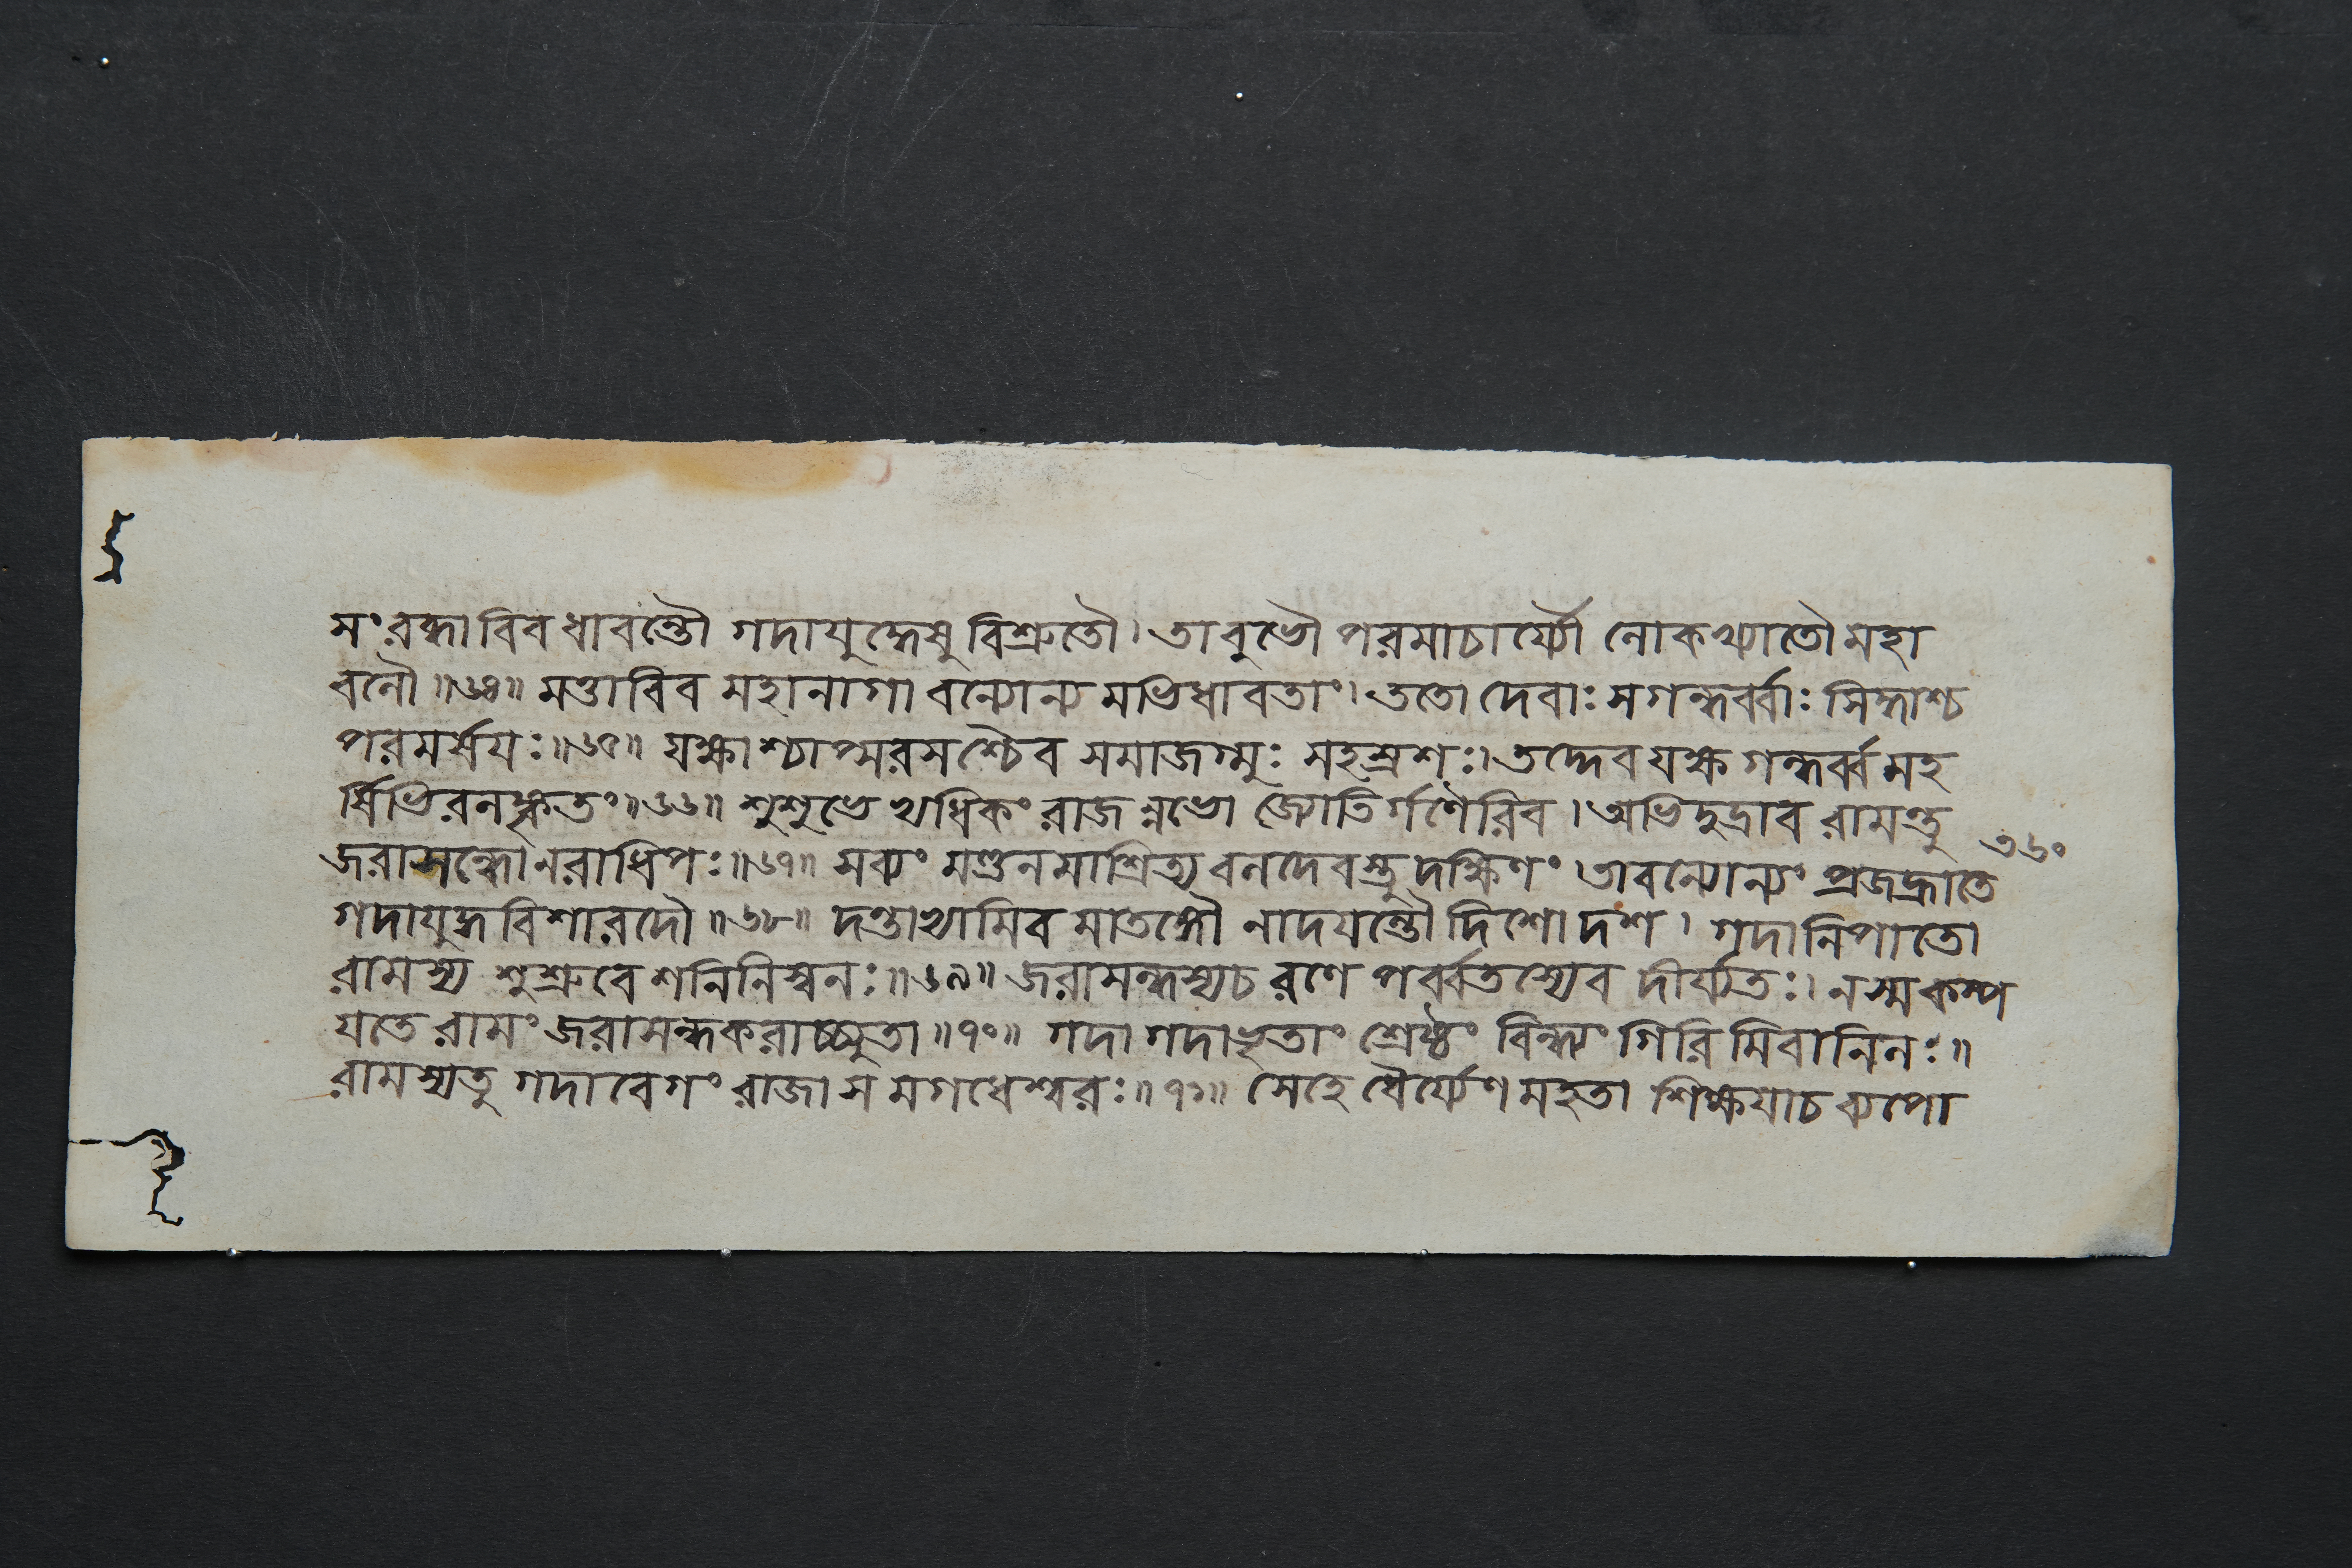 সংরব্ধাবিব ধাবন্তৌ গদাযুদ্ধেষু বিশ্রুতৌ। তাবুভৌ পরমাচার্য্যৌ লোকখ্যাতৌ মহা
বলৌ॥৬৪॥ মত্তাবিব মহানাগাবন্যোন্যমভিধাবতাং। ততো দেবাঃ সগন্ধর্ব্বাঃ সিদ্ধাশ্চ
পরমর্ষয়ঃ॥৬৫॥ যক্ষাশ্চাপ্সরসশ্চৈব সমাজগ্মুঃ সহস্রশঃ। তদ্দেবযক্ষগন্ধর্ব্বমহ
র্ষিভিরলঙ্কৃতং॥৬৬॥ শুশুভেঽভ্যধিকং রাজন্নভো জ্যোতির্গণৈরিব। অভিদুদ্রাব রামন্তু
৩৬০
জরাসন্ধো নরাধিপঃ॥৬৭॥ সব্যং মণ্ডলমাশ্রিত্য বলদেবস্তু দক্ষিণং। তাবন্যোন্যং প্রজহ্রাতে
গদাযুদ্ধবিশারদৌ॥৬৮॥ দন্তাভ্যামিব মাতঙ্গৌ নাদয়ন্তৌ দিশো দশ। গদানিপাতো
রামস্য শুশ্রুবেঽশনিনিস্বনঃ॥৬৯॥ জরাসন্ধস্য চ রণে পর্ব্বতস্যেব দীর্য্যতঃ। ন স্ম কম্প
য়তে রামং জরাসন্ধকরাচ্চ্যুতা॥৭০॥ গদা গদাভৃতাং শ্রেষ্ঠং বিন্ধ্যং গিরিমিবানিলঃ॥
রামস্য তু গদাবেগং রাজা স মগধেশ্বরঃ॥৭১॥ সেহে ধৈর্য্যেণ মহতা শিক্ষয়া চ ব্যপো